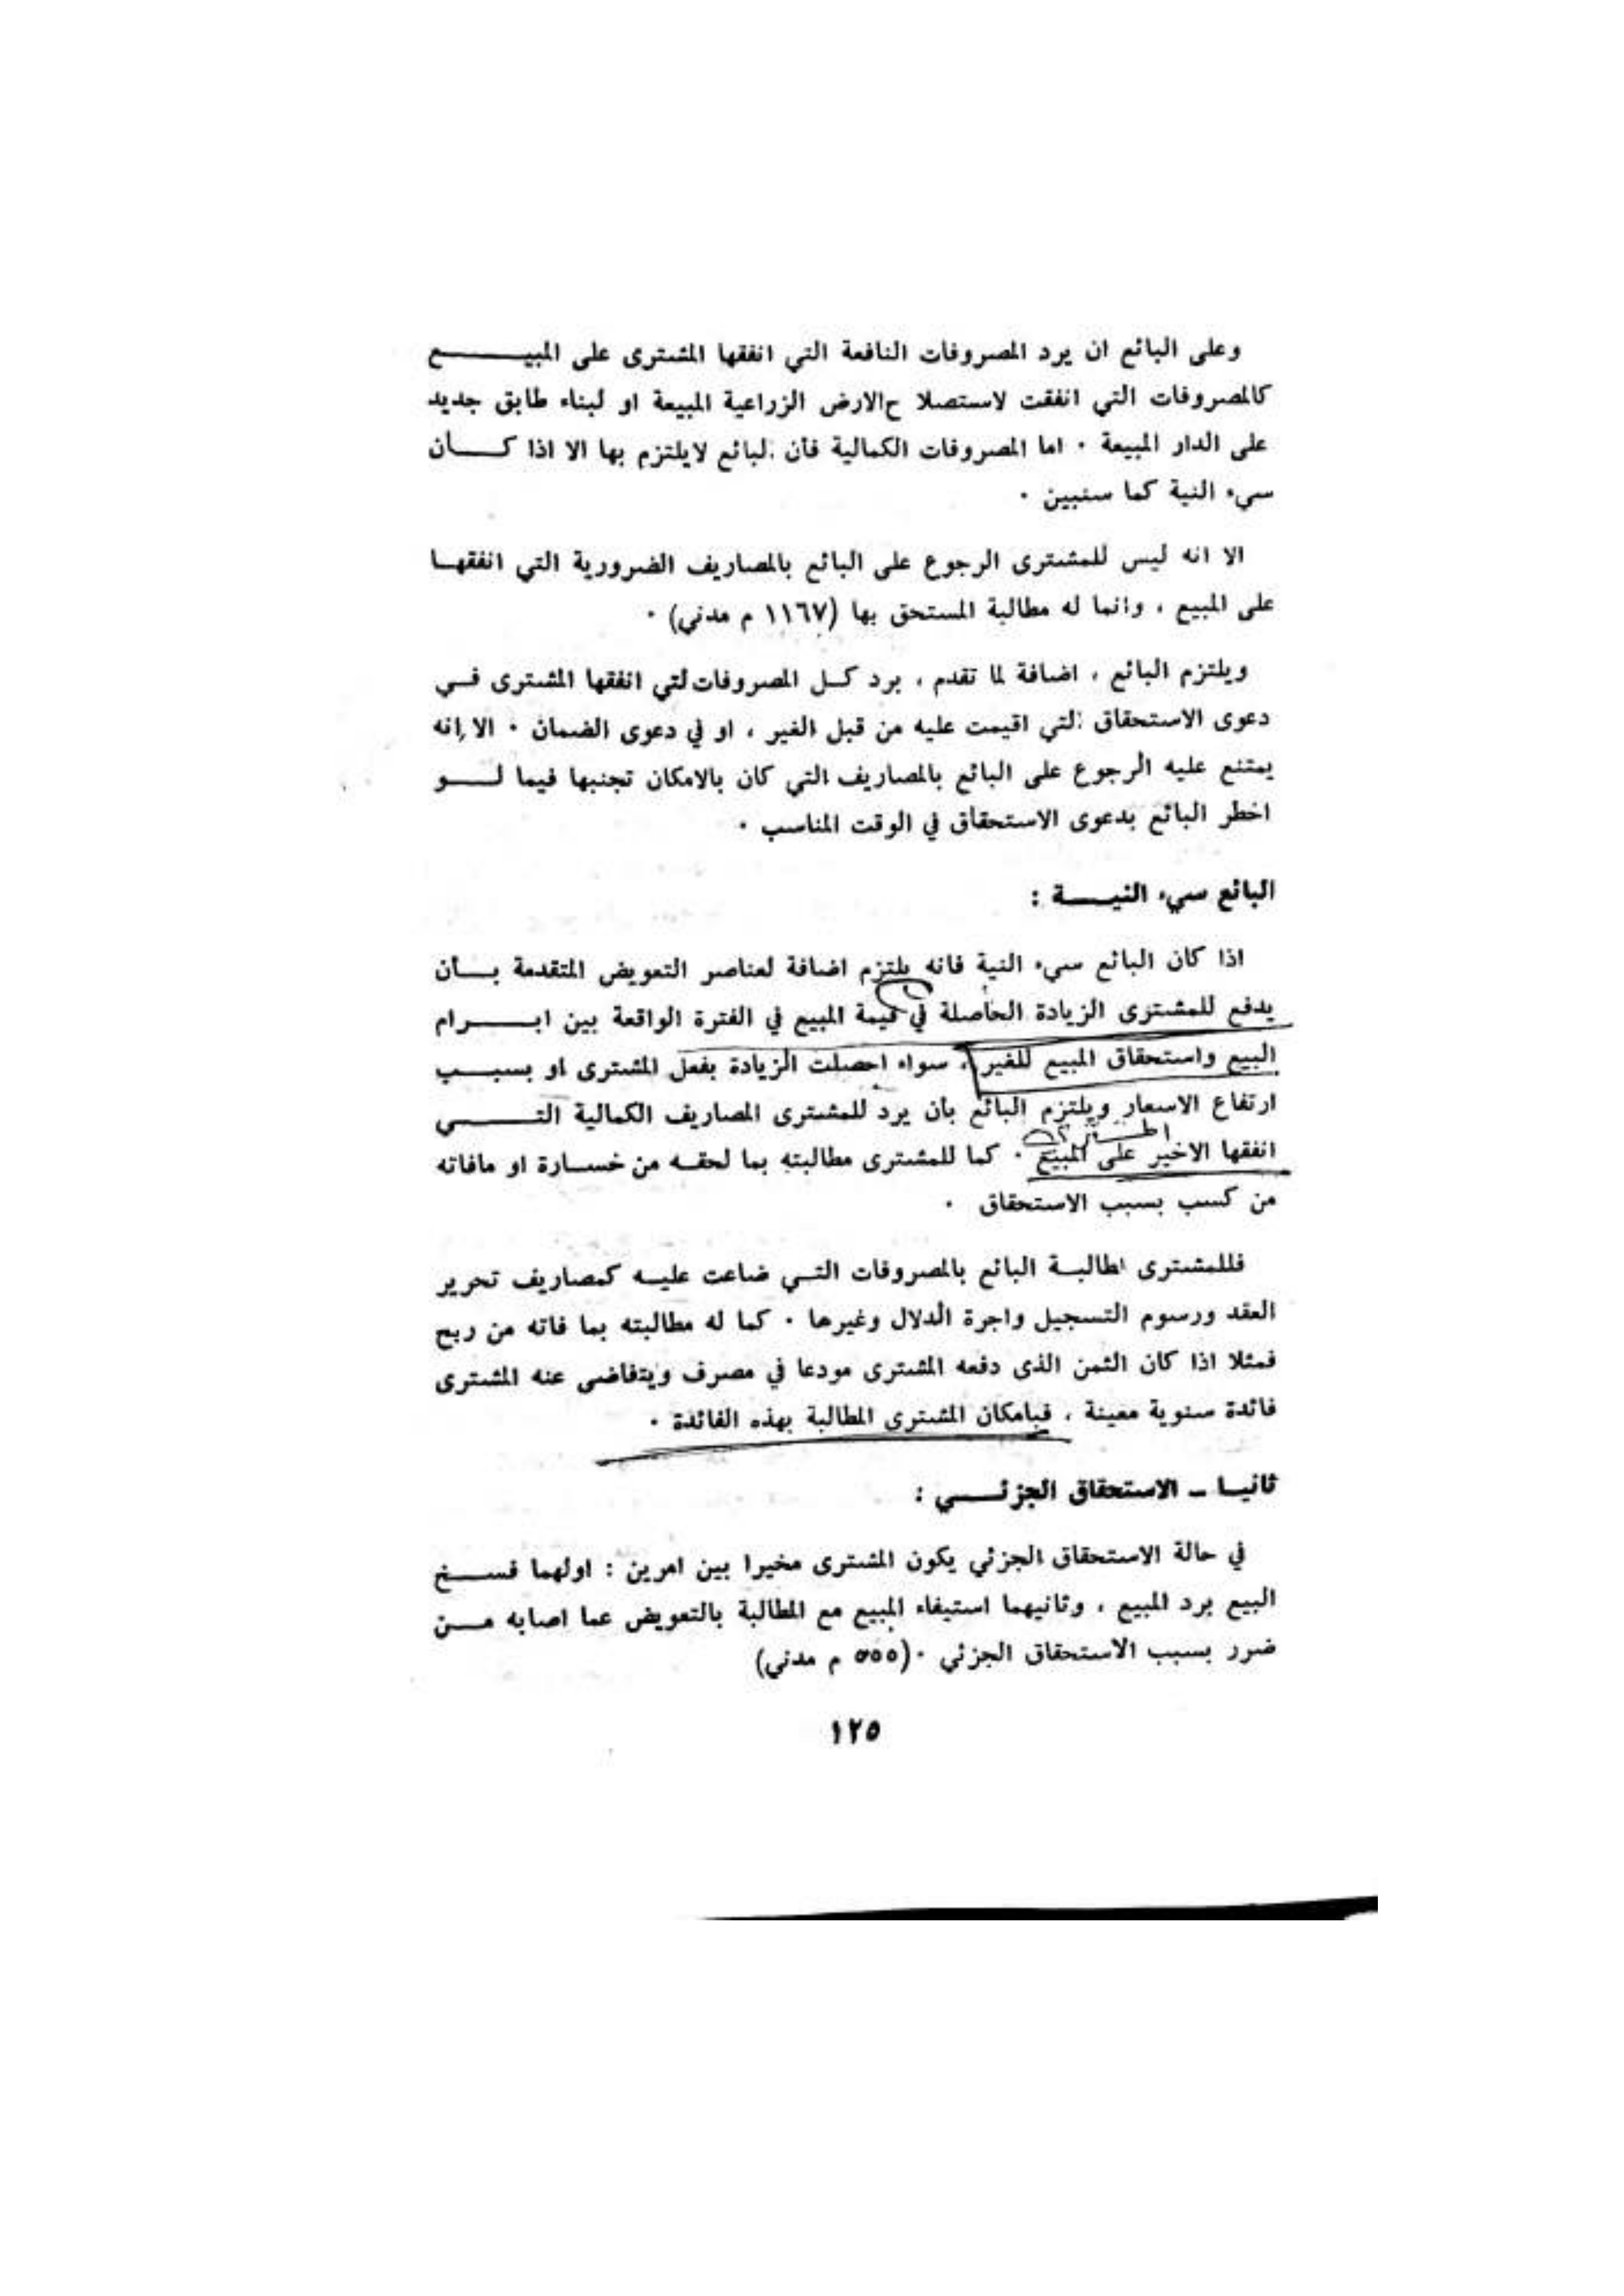 وعلى البائع ان يرد المصروفات النافعة التي انفقها المشترى على المبيـــــــع
كالمصروفات التي انفقت لاستصلا ح‌الارض الزراعية المبيعة او لبناء طابق جديد
على الدار المبيعة ٠ اما المصروفات الكمالية فأن البائع لايلتزم بها الا اذا كـــأن
سيء النية كما سنبين ٠
الا انه ليس للمشترى الرجوع على البائع بالمصاريف الضرورية التي انفقهـا
على المبيع ، وانما له مطالبة المستحق بها (١١٦٧ م مدني) ٠
ويلتزم البائع ، اضافة لما تقدم ، برد كـل المصروفات‌لتي انفقها المشترى فـي
دعوى الاستحقاق التي اقيمت عليه من قبل الغير ، او في دعوى الضمان ٠ الا انه
يمتنع عليه الرجوع على البائع بالمصاريف التي كان بالامكان تجنبها فيما لـــو
اخطر البائع بدعوى الاستحقاق في الوقت المناسب ٠
البائع سيء النيـــة :
اذا كان البائع سيء النية فانه يلتزم اضافة لعناصر التعويض المتقدمة بـــأن
يدفع للمشترى الزيادة الحاصلة في قيمة المبيع في الفترة الواقعة بين ابـــــرام
البيع واستحقاق المبيع للغير ، سواء احصلت الزيادة بفعل المشترى او بسبـــب
ارتفاع الاسعار ويلتزم البائع بأن يرد للمشترى المصاريف الكمالية التـــــي
انفقها الاخير على المبيع ٠ كما للمشترى مطالبته بما لحقـه من خسـارة او مافاته
من كسب بسبب الاستحقاق ٠
فللمشترى مطالبـة البائع بالمصروفات التـي ضاعت عليـه كمصاريف تحرير
العقد ورسوم التسجيل واجرة الدلال وغيرها ٠ كما له مطالبته بما فاته من ربح
فمثلا اذا كان الثمن الذى دفعه المشترى مودعا في مصرف ويتقاضى عنه المشترى
فائدة سنوية معينة ، فبامكان المشترى المطالبة بهذه الفائدة ٠
ثانيـا ـ الاستحقاق الجزئــــي :
في حالة الاستحقاق الجزئي يكون المشترى مخيرا بين امرين : اولهما فســـخ
البيع برد المبيع ، وثانيهما استيفاء المبيع مع المطالبة بالتعويض عما اصابه مـــن
ضرر بسبب الاستحقاق الجزئي ٠(٥٥٥ م مدني)
١٢٥